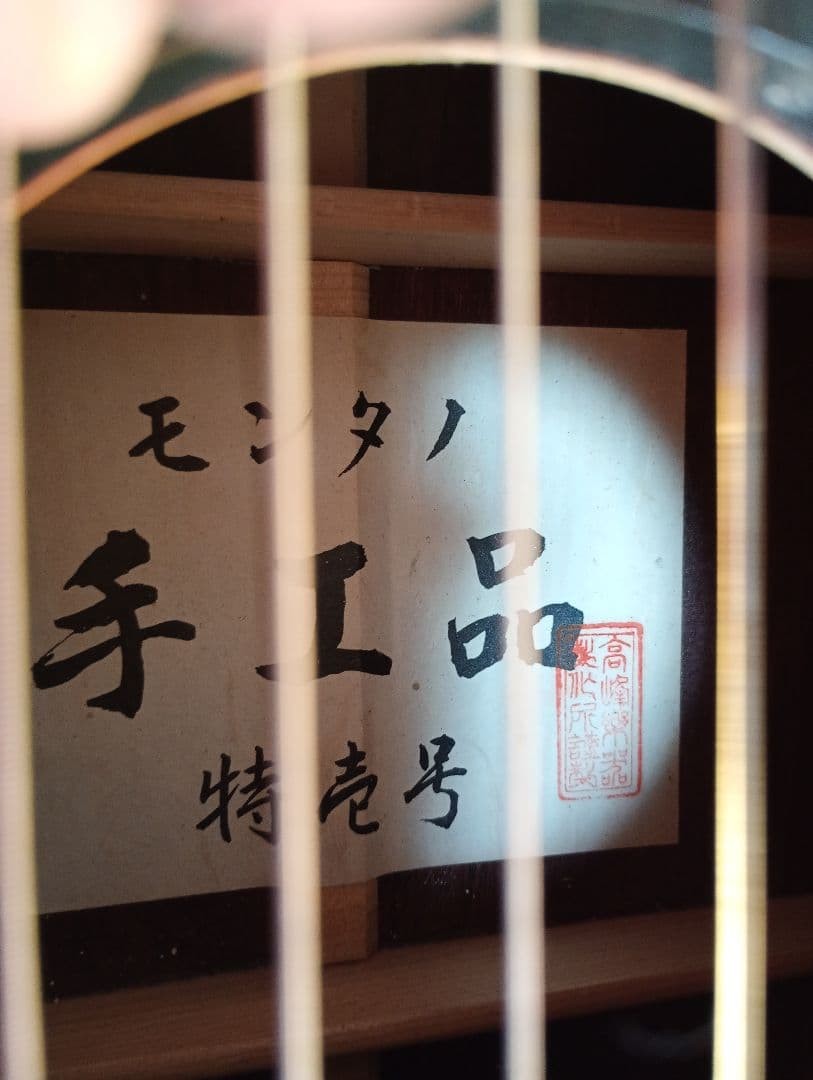 モンタノ
手工品
特壱号
高峰楽器
製作所謹製